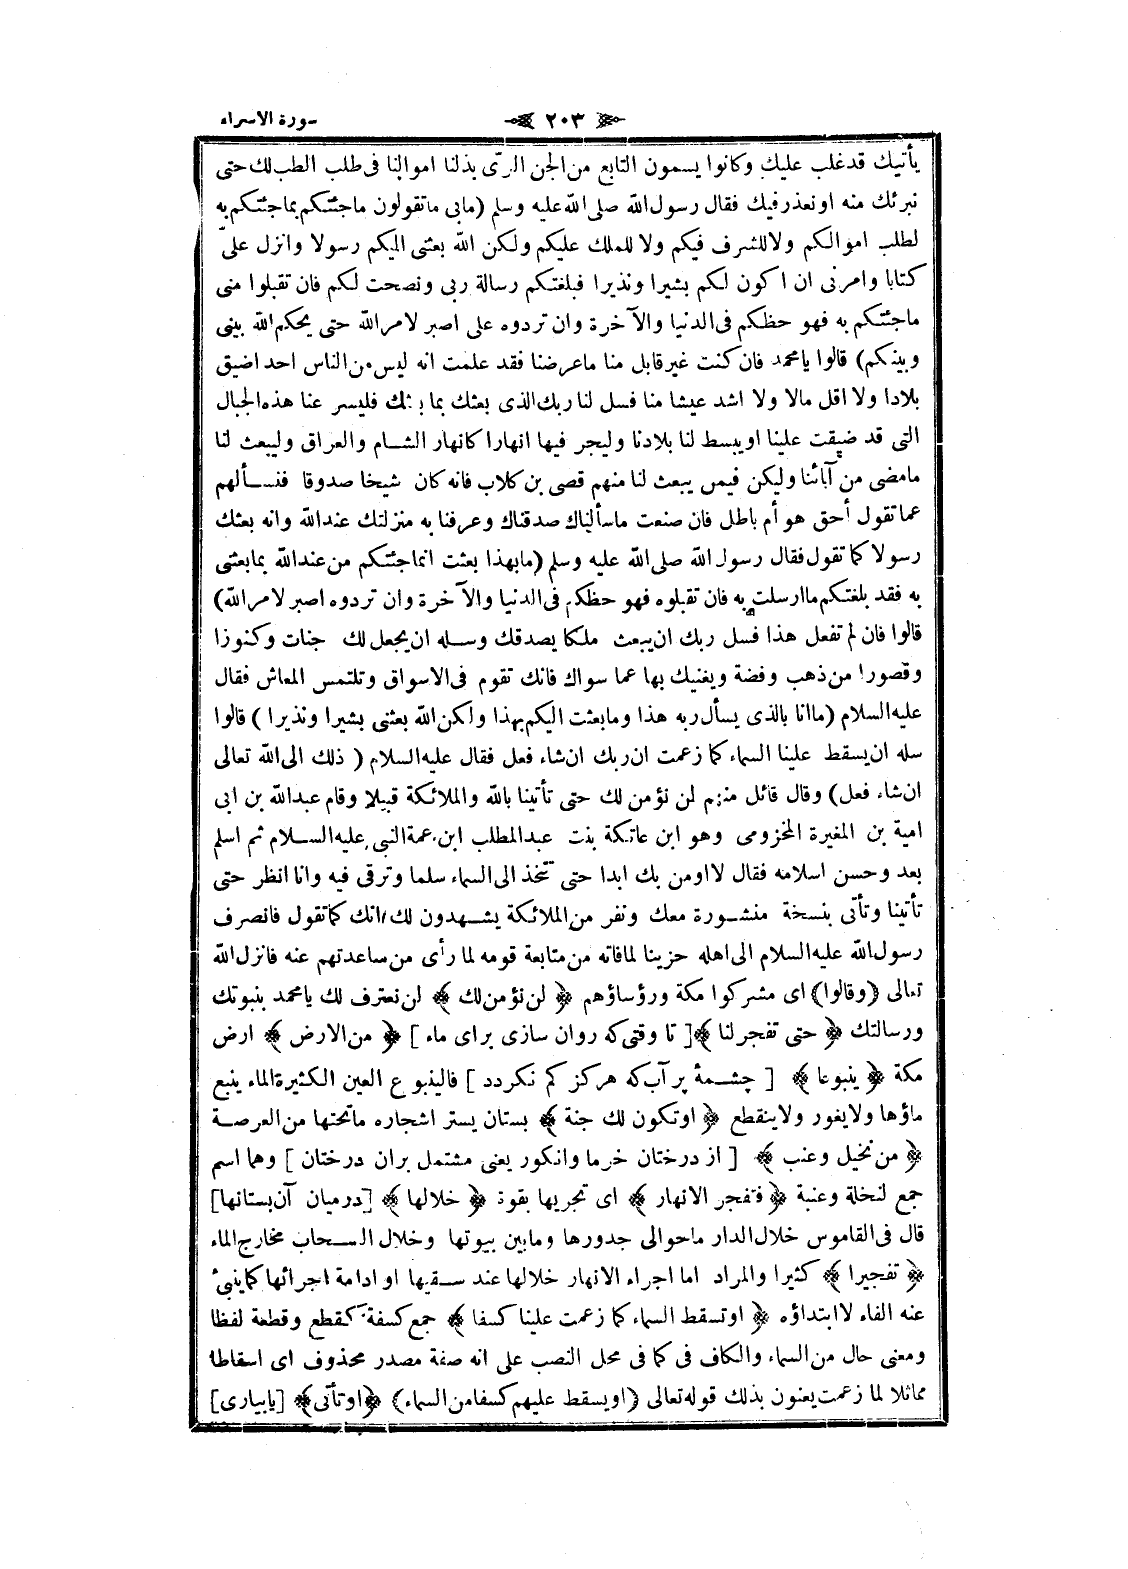 سورة الاسراء
٢٠٣
يأتيك قد غلب عليك وكانوا يسمون التابع من الجن الرئى بذلنا اموالنا فى طلب الطب لك حتى
نبرئك منه او نعذر فيك فقال رسول الله صلى الله عليه وسلم (مابى ما تقولون ماجئتكم بماجئتكم به
لطلب اموالكم ولا للشرف فيكم ولا للملك عليكم ولكن الله بعثنى اليكم رسولا وانزل علىّ
كتابا وامرنى ان اكون لكم بشيرا ونذيرا فبلغتكم رسالة ربى ونصحت لكم فان تقبلوا منى
ماجئتكم به فهو حظكم فى الدنيا والآخرة وان تردوه على اصبر لامر الله حتى يحكم الله بينى
وبينكم) قالوا يامحمد فان كنت غير قابل منا ماعرضنا فقد علمت انه ليس من الناس احد اضيق
بلادا ولا اقل مالا ولا اشد عيشا منا فسل لنا ربك الذى بعثك بما بعثك فليسر عنا هذه الجبال
التى قد ضيقت علينا او يبسط لنا بلادنا وليجر فيها انهارا كانهار الشام والعراق وليبعث لنا
مامضى من آبائنا وليكن فيمن يبعث لنا منهم قصى بن كلاب فانه كان شيخا صدوقا فنسألهم
عما تقول أحق هو أم باطل فان صنعت ماسألناك صدقناك وعرفنا به منزلتك عند الله وانه بعثك
رسولا كما تقول فقال رسول الله صلى الله عليه وسلم (مابهذا بعثت انما جئتكم من عند الله بما بعثنى
به فقد بلغتكم ما ارسلت به فان تقبلوه فهو حظكم فى الدنيا والآخرة وان تردوه اصبر لامر الله)
قالوا فان لم تفعل هذا فسل ربك ان يبعث ملكا يصدقك وسله ان يجعل لك جنات وكنوزا
وقصورا من ذهب وفضة ويغنيك بها عما سواك فانك تقوم فى الاسواق وتلتمس المعاش فقال
عليه السلام (ما انا بالذى يسأل ربه هذا وما بعثت اليكم بهذا ولكن الله بعثنى بشيرا ونذيرا) قالوا
سله ان يسقط علينا السماء كما زعمت ان ربك ان شاء فعل فقال عليه السلام (ذلك الى الله تعالى
ان شاء فعل) وقال قائل منهم لن نؤمن لك حتى تأتينا بالله والملائكة قبيلا وقام عبد الله بن ابى
امية بن المغيرة المخزومى وهو ابن عاتكة بنت عبد المطلب ابن عمة النبى عليه السلام ثم اسلم
بعد وحسن اسلامه فقال لا اومن بك ابدا حتى تتخذ الى السماء سلما وترقى فيه وانا انظر حتى
تأتينا وتأتى بنسخة منشورة معك ونفر من الملائكة يشهدون لك انك كما تقول فانصرف
رسول الله عليه السلام الى اهله حزينا لما فاته من متابعة قومه لما رأى من مباعدتهم عنه فانزل الله
تعالى (وقالوا) اى مشركوا مكة ورؤساؤهم ﴿لن نؤمن لك﴾ لن نعترف لك يا محمد بنبوتك
ورسالتك ﴿حتى تفجر لنا﴾ [تا وقتى كه روان سازى براى ماء] ﴿من الارض﴾ ارض
مكة ﴿ينبوعا﴾ [چشمهٔ پر آب كه هركز كم نكردد] فالينبوع العين الكثيرة الماء ينبع
ماؤها ولا يغور ولا ينقطع ﴿او تكون لك جنة﴾ بستان يستر اشجاره ماتحتها من العرصة
﴿من نخيل وعنب﴾ [از درختان خرما وانكور يعنى مشتمل بران درختان] وهما اسم
جمع لنخلة وعنبة ﴿فتفجر الانهار﴾ اى تجريها بقوة ﴿خلالها﴾ [درميان آن بستانها]
قال فى القاموس خلال الدار ماحوالى جدورها ومابين بيوتها وخلال السحاب مخارج الماء
﴿تفجيرا﴾ كثيرا والمراد اما اجراء الانهار خلالها عند سقيها او ادامة اجرائها كما ينبئ
عنه الفاء لا ابتداؤه ﴿او تسقط السماء كما زعمت علينا كسفا﴾ جمع كسفة كقطع وقطعة لفظا
ومعنى حال من السماء والكاف فى كما فى محل النصب على انه صفة مصدر محذوف اى اسقاطا
مماثلا لما زعمت يعنون بذلك قوله تعالى (او يسقط عليهم كسفا من السماء) ﴿او تأتى﴾ [يا بيارى]